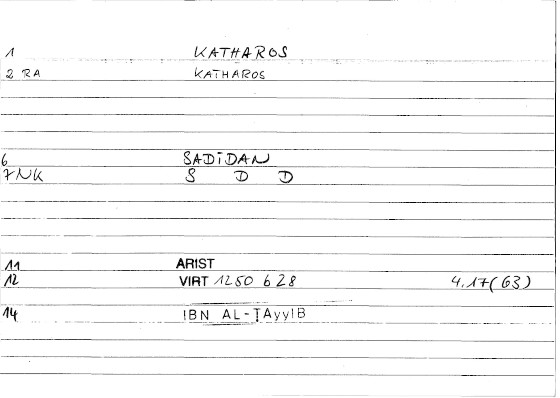 1 KATHAROS
2 RA KATHAROS
6 SADiDAN
7NK S D D
11 ARIST
12 VIRT 1250 628 4.17(63)
14 IBN AL-ṬAyyIB